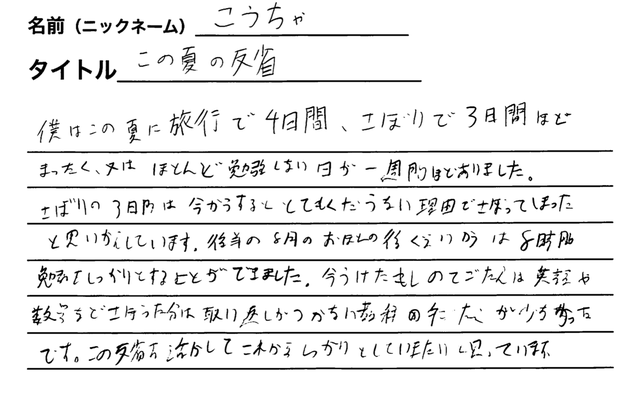 名前（ニックネーム） こうちゃ
タイトル この夏の反省
僕はこの夏に旅行で4日間、さぼりで3日間ほど
まったく、又は ほとんど勉強しない日が一週間ほどありました。
さぼりの3日間は今からするととてもくだらない理由でさぼってしまった
と思いかえしています。後半の8月のお盆の後くらいからは8時間
勉強をしっかりとすることができました。今うけたもしのてごたえは英語や
数学などさぼった分は取り返しがつかない教科の
です。この反省を活かしてこれからしっかりとしていきたいと思っています